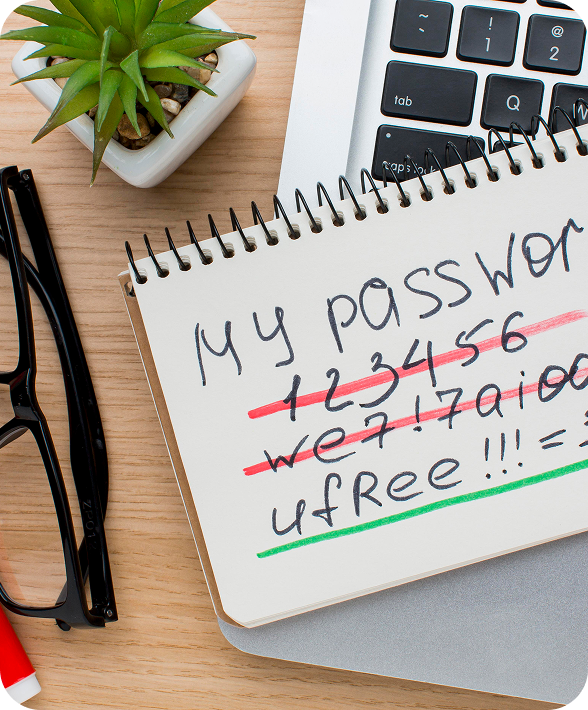 ~
`
!
1
@
2
tab
Q
caps lock
My passwor
123456
we7!7aioo
ufRee!!!=